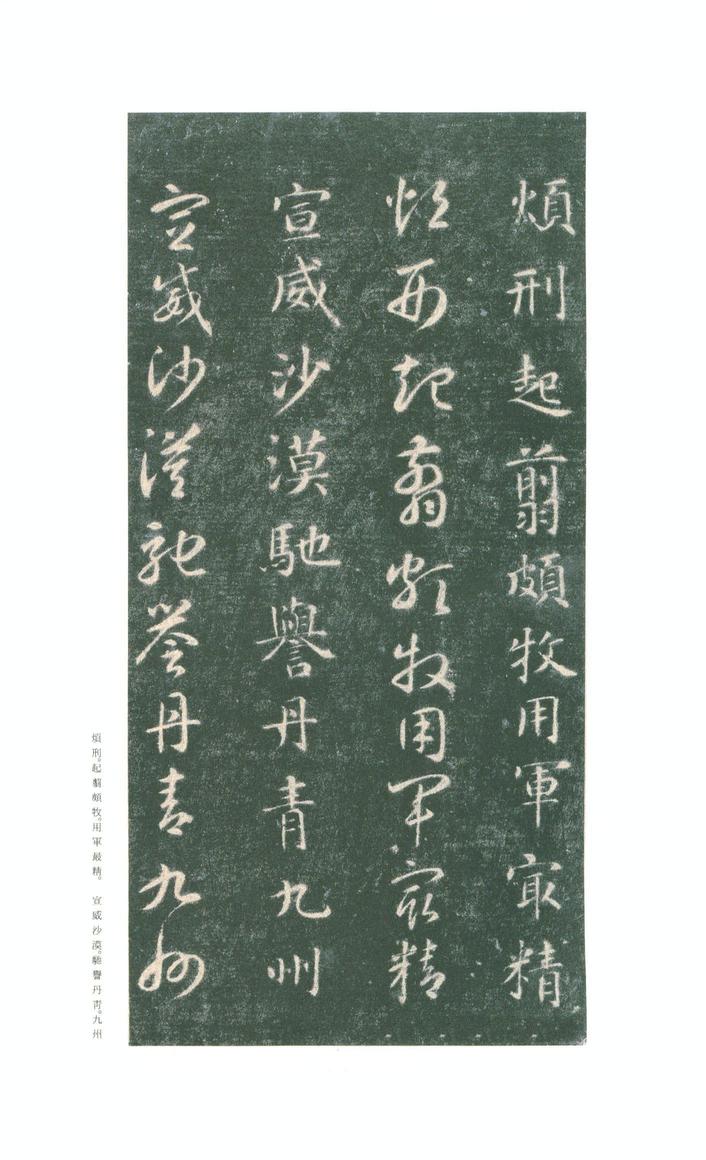 煩刑起翦頗牧用軍㝡精
煩刑起翦頗牧用軍㝡精
宣威沙漠馳譽丹青九州
宣威沙漠馳譽丹青九州
煩刑。起翦頗牧。用軍最精。 宣威沙漠。馳譽丹靑。九州